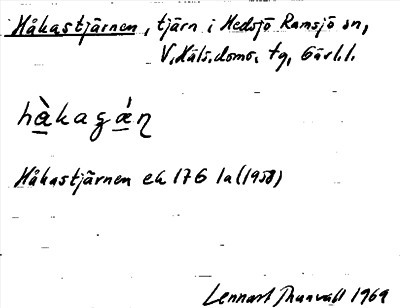 Håkastjärnen, tjärn i Hedsjö Ramsjö sn,
V. Häls. doms. tg, Gävl. l.
hàkagán
Håkastjärnen ek 17G 1a (1958)
Lennart 1969